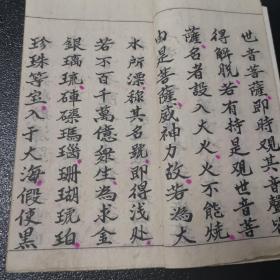 世音菩薩即時觀其音聲皆
得解脱若有持是观世音菩
薩名者設入大火火不能燒
由是菩薩威神力故若為大
水所漂称其名號即得浅处
若不百千萬億衆生為求金
銀璃琉硨磲瑪瑙珊瑚琥珀
珍珠等宝入于大海假使黒